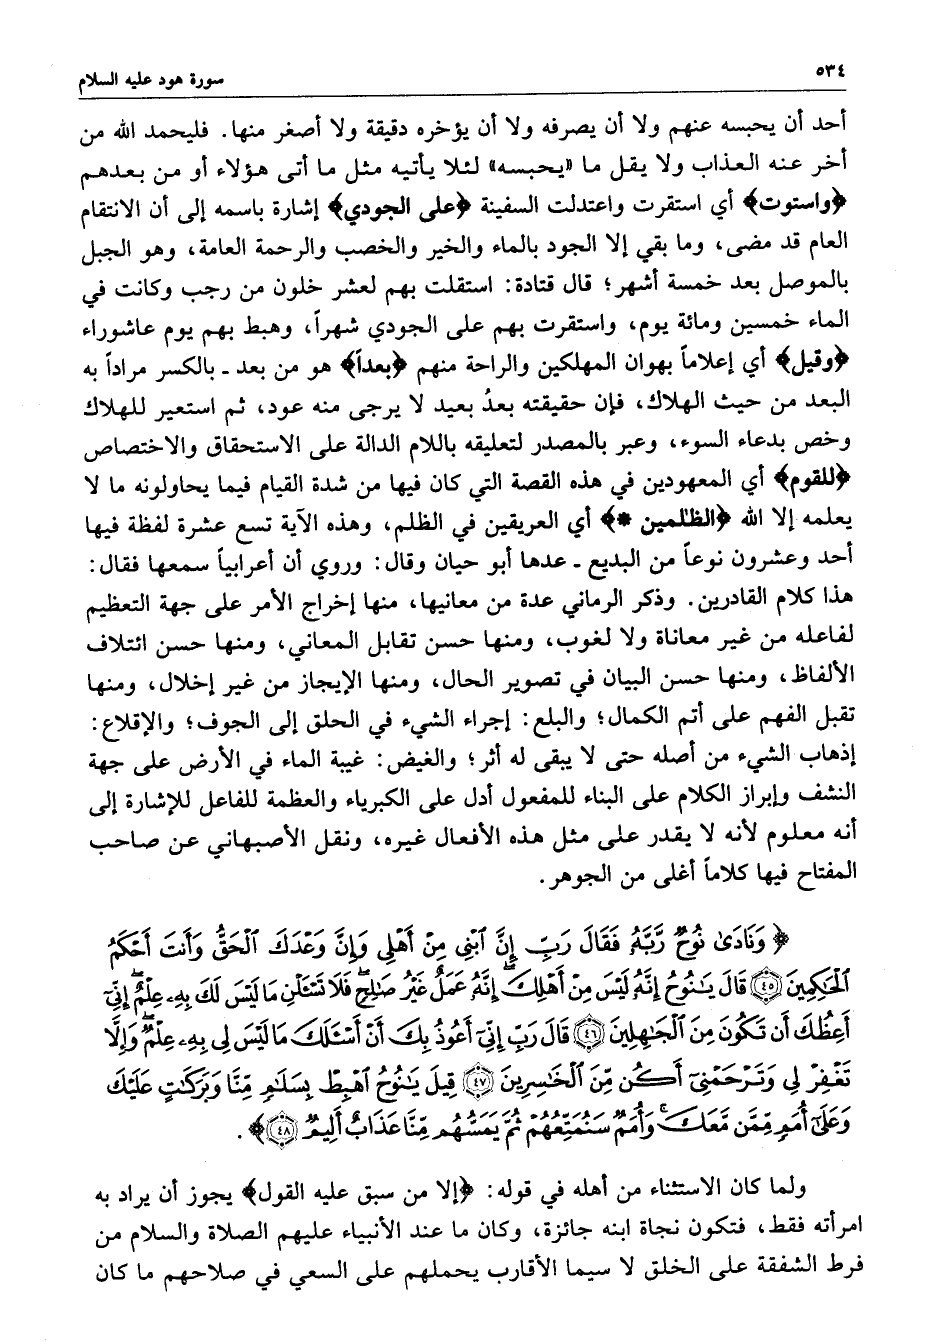 ٥٣٤
سورة هود عليه السلام
أحد أن يحبسه عنهم ولا أن يصرفه ولا أن يؤخره دقيقة ولا أصغر منها. فليحمد الله من
أخر عنه العذاب ولا يقل ما «يحبسه» لئلا يأتيه مثل ما أتى هؤلاء أو من بعدهم
﴿واستوت﴾ أي استقرت واعتدلت السفينة ﴿على الجودي﴾ إشارة باسمه إلى أن الانتقام
العام قد مضى، وما بقي إلا الجود بالماء والخير والخصب والرحمة العامة، وهو الجبل
بالموصل بعد خمسة أشهر؛ قال قتادة: استقلت بهم لعشر خلون من رجب وكانت في
الماء خمسين ومائة يوم، واستقرت بهم على الجودي شهراً، وهبط بهم يوم عاشوراء
﴿وقيل﴾ أي إعلاماً بهوان المهلكين والراحة منهم ﴿بعداً﴾ هو من بعد - بالكسر مراداً به
البعد من حيث الهلاك، فإن حقيقته بعدُ بعيد لا يرجى منه عود، ثم استعير للهلاك
وخص بدعاء السوء، وعبر بالمصدر لتعليقه باللام الدالة على الاستحقاق والاختصاص
﴿للقوم﴾ أي المعهودين في هذه القصة التي كان فيها من شدة القيام فيما يحاولونه ما لا
يعلمه إلا الله ﴿الظٰلمين *﴾ أي العريقين في الظلم، وهذه الآية تسع عشرة لفظة فيها
أحد وعشرون نوعاً من البديع - عدها أبو حيان وقال: وروي أن أعرابياً سمعها فقال:
هذا كلام القادرين. وذكر الرماني عدة من معانيها، منها إخراج الأمر على جهة التعظيم
لفاعله من غير معاناة ولا لغوب، ومنها حسن تقابل المعاني، ومنها حسن ائتلاف
الألفاظ، ومنها حسن البيان في تصوير الحال، ومنها الإيجاز من غير إخلال، ومنها
تقبل الفهم على أتم الكمال؛ والبلع: إجراء الشيء في الحلق إلى الجوف؛ والإقلاع:
إذهاب الشيء من أصله حتى لا يبقى له أثر؛ والغيض: غيبة الماء في الأرض على جهة
النشف وإبراز الكلام على البناء للمفعول أدل على الكبرياء والعظمة للفاعل للإشارة إلى
أنه معلوم لأنه لا يقدر على مثل هذه الأفعال غيره، ونقل الأصبهاني عن صاحب
المفتاح فيها كلاماً أغلى من الجوهر.
﴿ وَنَادَىٰ نُوحٌ رَّبَّهُ فَقَالَ رَبِّ إِنَّ ٱبْنِى مِنْ أَهْلِى وَإِنَّ وَعْدَكَ ٱلْحَقُّ وَأَنتَ أَحْكَمُ
ٱلْحَٰكِمِينَ ٤٥ قَالَ يَٰنُوحُ إِنَّهُ لَيْسَ مِنْ أَهْلِكَ ۖ إِنَّهُ عَمَلٌ غَيْرُ صَٰلِحٍ ۖ فَلَا تَسْـَٔلْنِ مَا لَيْسَ لَكَ بِهِۦ عِلْمٌ ۖ إِنِّىٓ
أَعِظُكَ أَن تَكُونَ مِنَ ٱلْجَٰهِلِينَ ٤٦ قَالَ رَبِّ إِنِّىٓ أَعُوذُ بِكَ أَنْ أَسْـَٔلَكَ مَا لَيْسَ لِى بِهِۦ عِلْمٌ ۖ وَإِلَّا
تَغْفِرْ لِى وَتَرْحَمْنِىٓ أَكُن مِّنَ ٱلْخَٰسِرِينَ ٤٧ قِيلَ يَٰنُوحُ ٱهْبِطْ بِسَلَٰمٍ مِّنَّا وَبَرَكَٰتٍ عَلَيْكَ
وَعَلَىٰٓ أُمَمٍ مِّمَّن مَّعَكَ ۚ وَأُمَمٌ سَنُمَتِّعُهُمْ ثُمَّ يَمَسُّهُم مِّنَّا عَذَابٌ أَلِيمٌ ٤٨﴾.
ولما كان الاستثناء من أهله في قوله: ﴿إلا من سبق عليه القول﴾ يجوز أن يراد به
امرأته فقط، فتكون نجاة ابنه جائزة، وكان ما عند الأنبياء عليهم الصلاة والسلام من
فرط الشفقة على الخلق لا سيما الأقارب يحملهم على السعي في صلاحهم ما كان